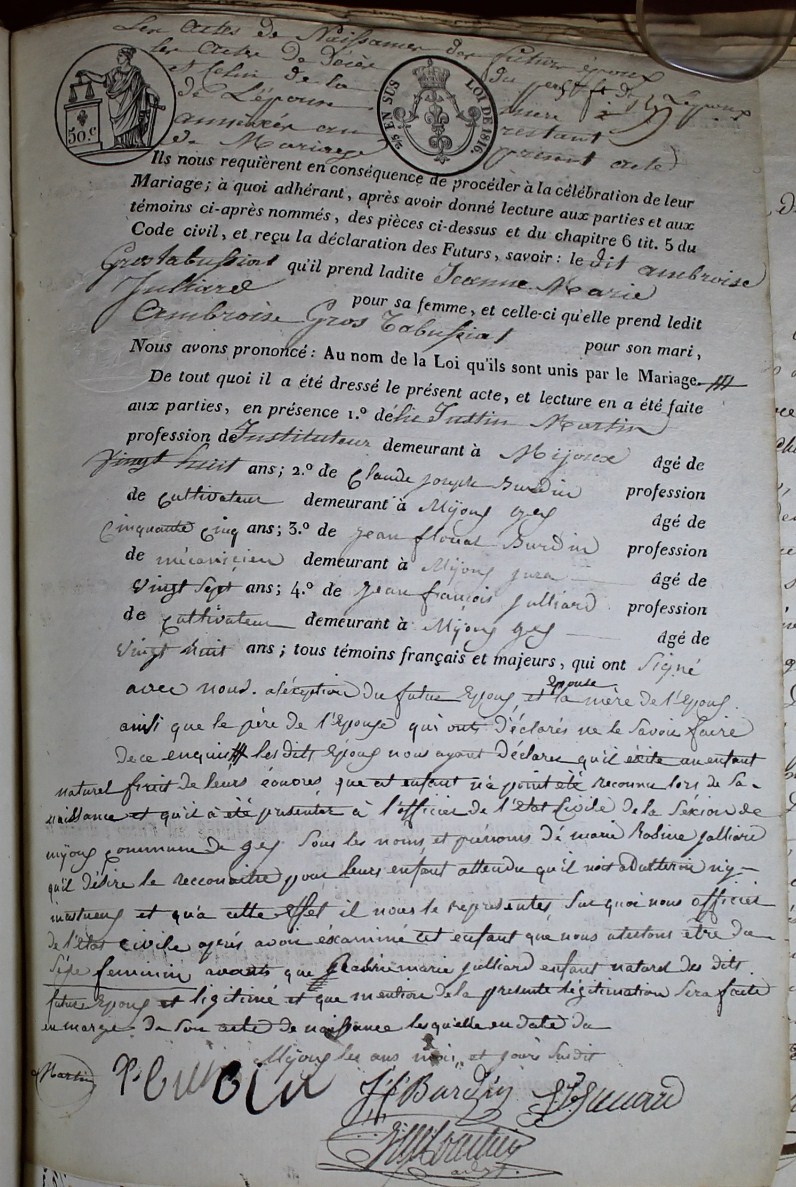 Les actes de Naissance des futur époux
les acte de décès du père
et celui de la mere
de L'épouse restant
annexés au present acte
de Mariage
50 c.
25 EN SUS LOI DE 1816.
Ils nous requièrent en conséquence de procéder à la célébration de leur
Mariage; à quoi adhérant, après avoir donné lecture aux parties et aux
témoins ci-après nommés, des pièces ci-dessus et du chapitre 6 tit. 5 du
Code civil, et reçu la déclaration des Futurs, savoir: le dit ambroise
Grostabussiat qu'il prend ladite Jeanne Marie
Julliard pour sa femme, et celle-ci qu'elle prend ledit
Ambroise Gros Tabussiat pour son mari,
Nous avons prononcé: Au nom de la Loi qu'ils sont unis par le Mariage.
De tout quoi il a été dressé le présent acte, et lecture en a été faite
aux parties, en présence 1.º de Martin
profession de Instituteur demeurant à Mijoux âgé de
vingt huit ans; 2.º de Claude joseph Burdin profession
de Cultivateur demeurant à Mijoux gex âgé de
Cinquante Cinq ans; 3.º de jean Burdin profession
de mécanicien demeurant à Mijoux jura âgé de
vingt Sept ans; 4.º de jean françois julliard profession
de Cultivateur demeurant à Mijoux gex âgé de
vingt huit ans; tous témoins français et majeurs, qui ont signé
avec nous. a léxeption du futur Epoux, et épouse la mère de l'Epoux
ainsi que le père de l'Epouse qui onts déclarés ne le Savoir faire
de ce enquis les dits Epoux nous ayant déclarés qu'il éxite un enfant
naturel fruit de leurs que cet enfant n'a point été reconnu lors de Sa
naissance et qu'il a été présenter à l'officier de l'état Civile de la Séxion de
mijoux commune de gex Sous les noms et prénoms de marie julliard
qu'il désire le reconaitre pour leurs enfant attendu qu'il
et qu'a cette Effet il nous le représentes Sur quoi nous officier
de l'état Civile après avoir éxaminé cet enfant que nous atestons être du
Séxe feminin que marie julliard enfant naturel des dits
futur Epoux et légitimé et que mention de la présente légitimation Sera faite
en marge de Son acte de naissance en date du
Mijoux les ans mois et jours Susdit
Martin
Burdin